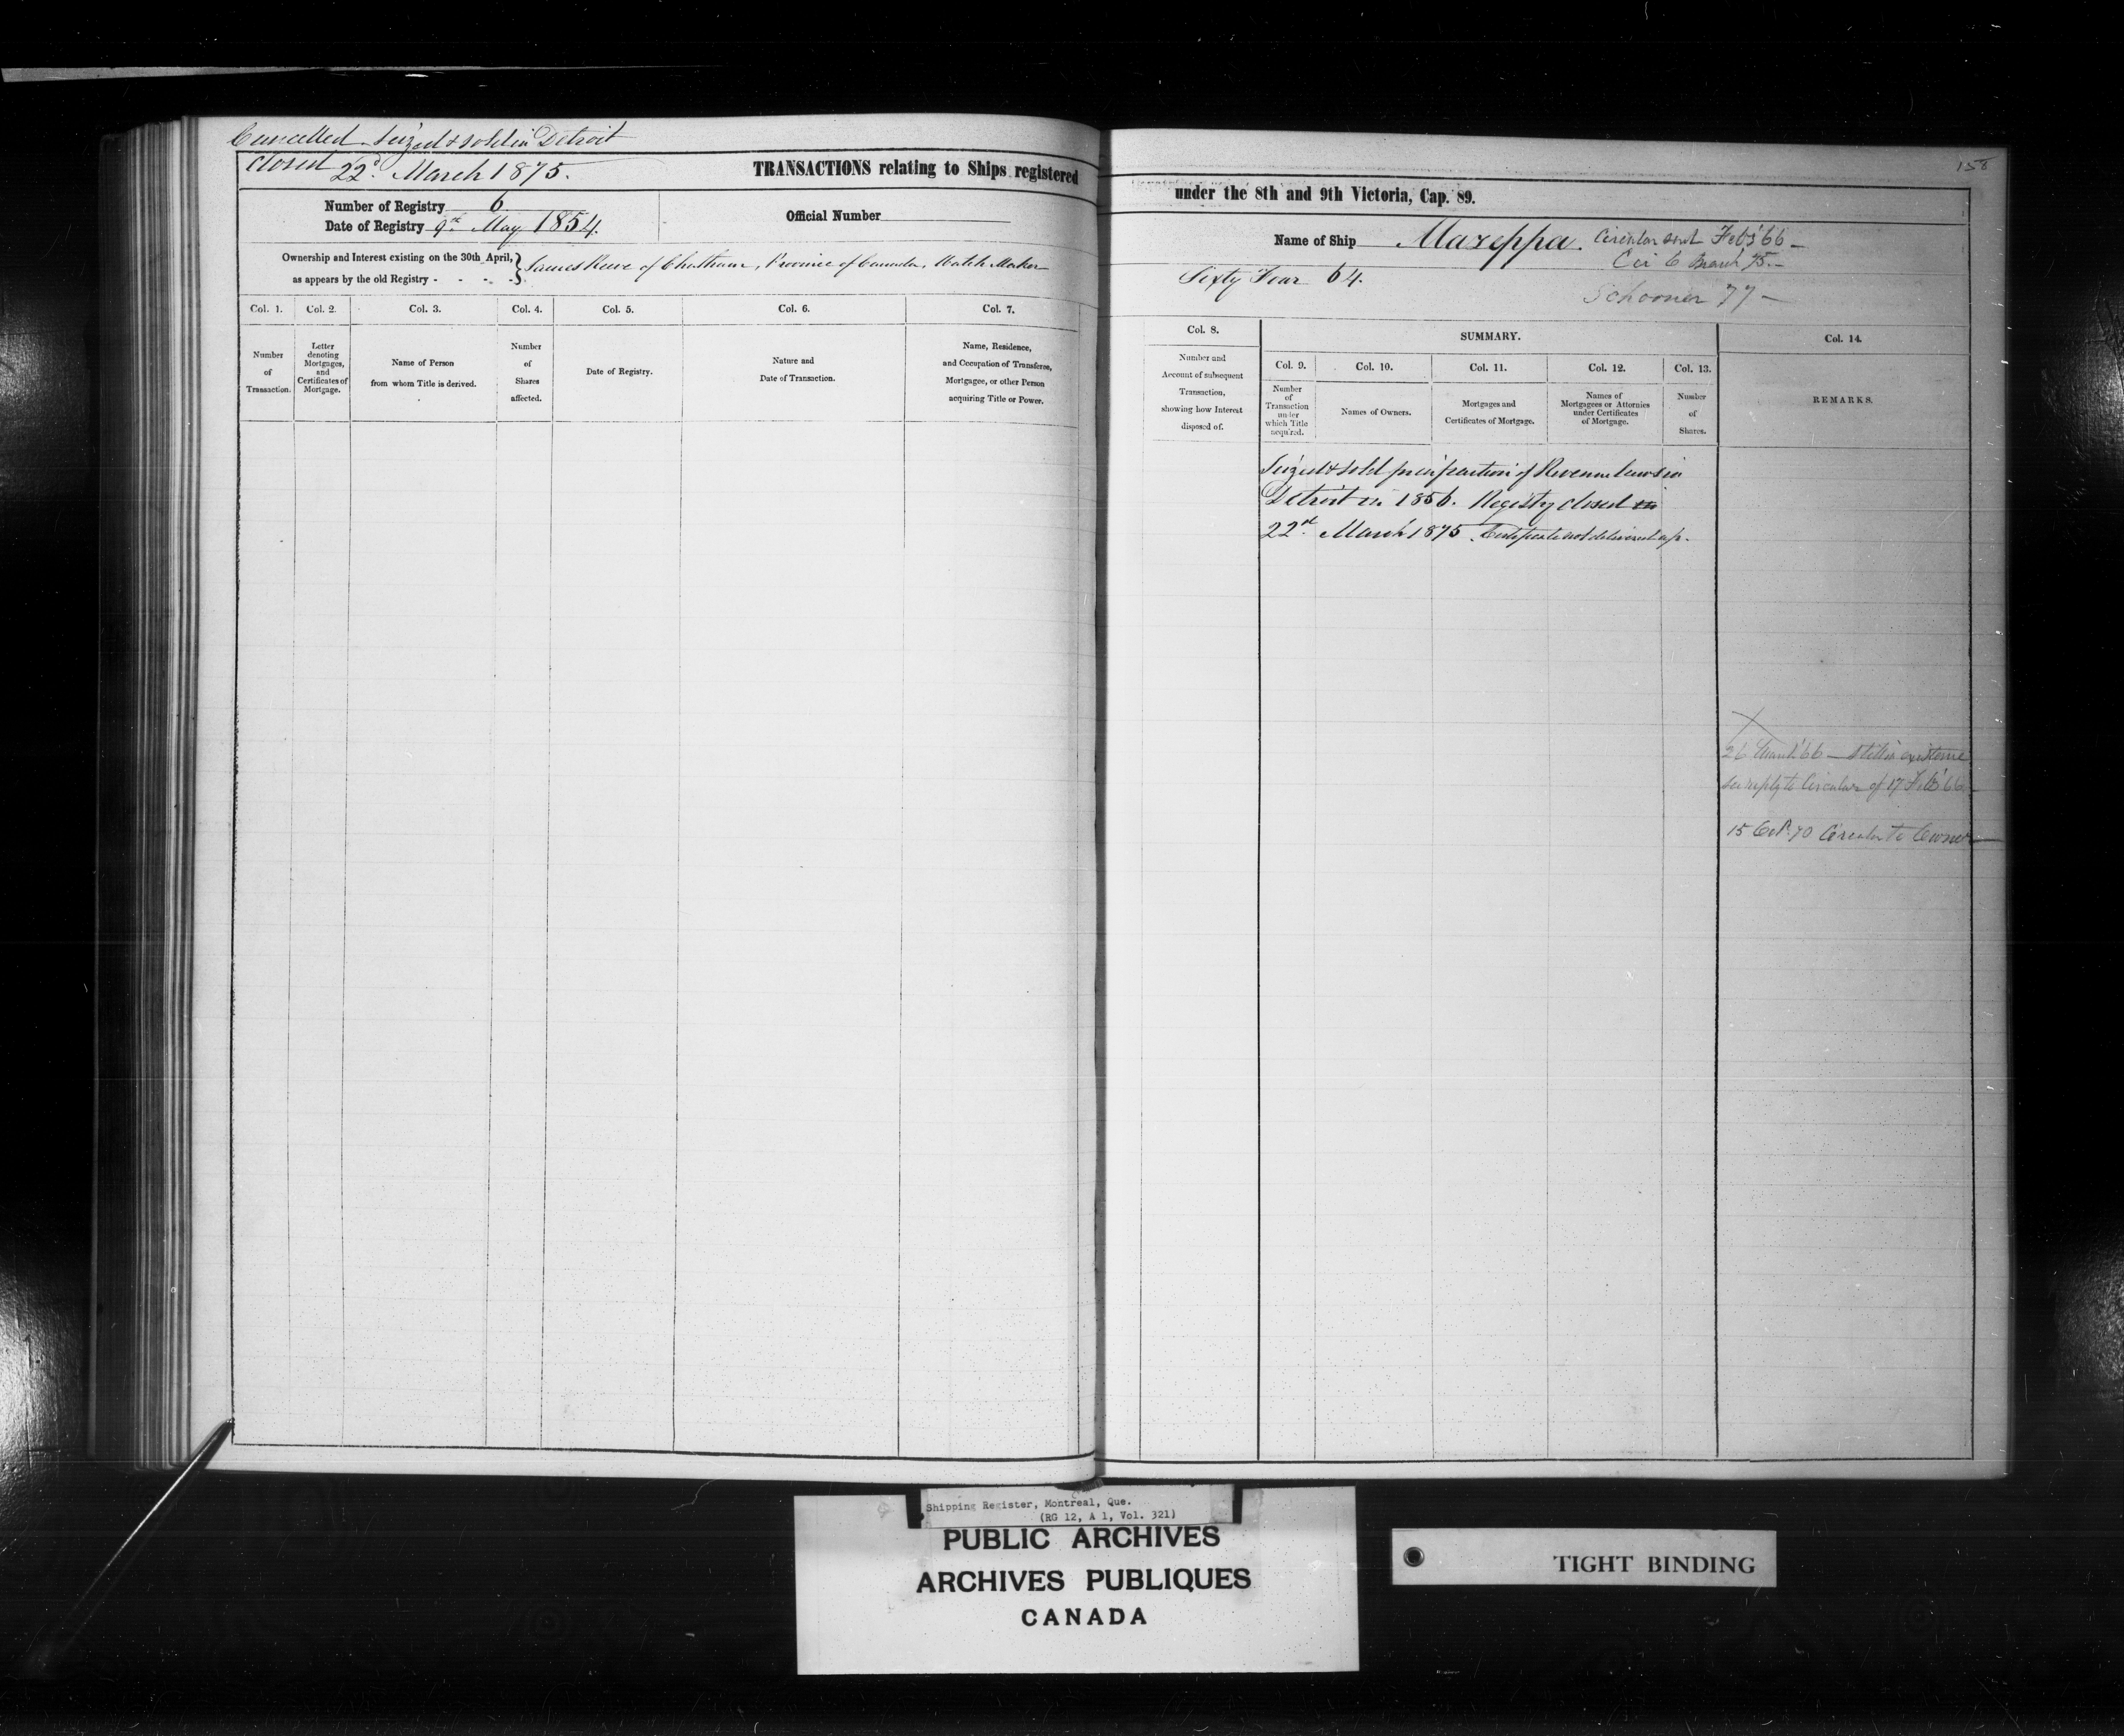 Cancelled. Seized & sold in Detroit
closed 22d. March 1875.
TRANSACTIONS relating to Ships registered
under the 8th and 9th Victoria, Cap. 89.
158
Number of Registry 6
Date of Registry 9th May 1854.
Official Number
Name of Ship Mazeppa. Circular sent Feby '66 —
Cir 6 March 75. —
Schooner 77 —
Ownership and Interest existing on the 30th April,
as appears by the old Registry - - - -
James Reeve of Chatham, Province of Canada, Watch Maker
Sixty Four 64.
Col. 1.
Number
of
Transaction.
Col. 2.
Letter
denoting
Mortgages,
and
Certificates of
Mortgage.
Col. 3.
Name of Person
from whom Title is derived.
Col. 4.
Number
of
Shares
affected.
Col. 5.
Date of Registry.
Col. 6.
Nature and
Date of Transaction.
Col. 7.
Name, Residence,
and Occupation of Transferee,
Mortgagee, or other Person
acquiring Title or Power.
Col. 8.
Number and
Account of subsequent
Transaction,
showing how Interest
disposed of.
SUMMARY.
Col. 9.
Number
of
Transaction
under
which Title
acquired.
Col. 10.
Names of Owners.
Col. 11.
Mortgages and
Certificates of Mortgage.
Col. 12.
Names of
Mortgagees or Attornies
under Certificates
of Mortgage.
Col. 13.
Number
of
Shares.
Col. 14.
REMARKS.
Seized & sold for infraction of Revenue laws in
Detroit in 1856. Registry closed in
22nd. March 1875. Certificate not delivered up.
26 March '66 — still in existence
see reply to Circular of 17 Feb '66 —
15 Oct. 70 Circular to Owner —
Shipping Register, Montreal, Que.
(RG 12, A 1, Vol. 321)
PUBLIC ARCHIVES
ARCHIVES PUBLIQUES
CANADA
TIGHT BINDING